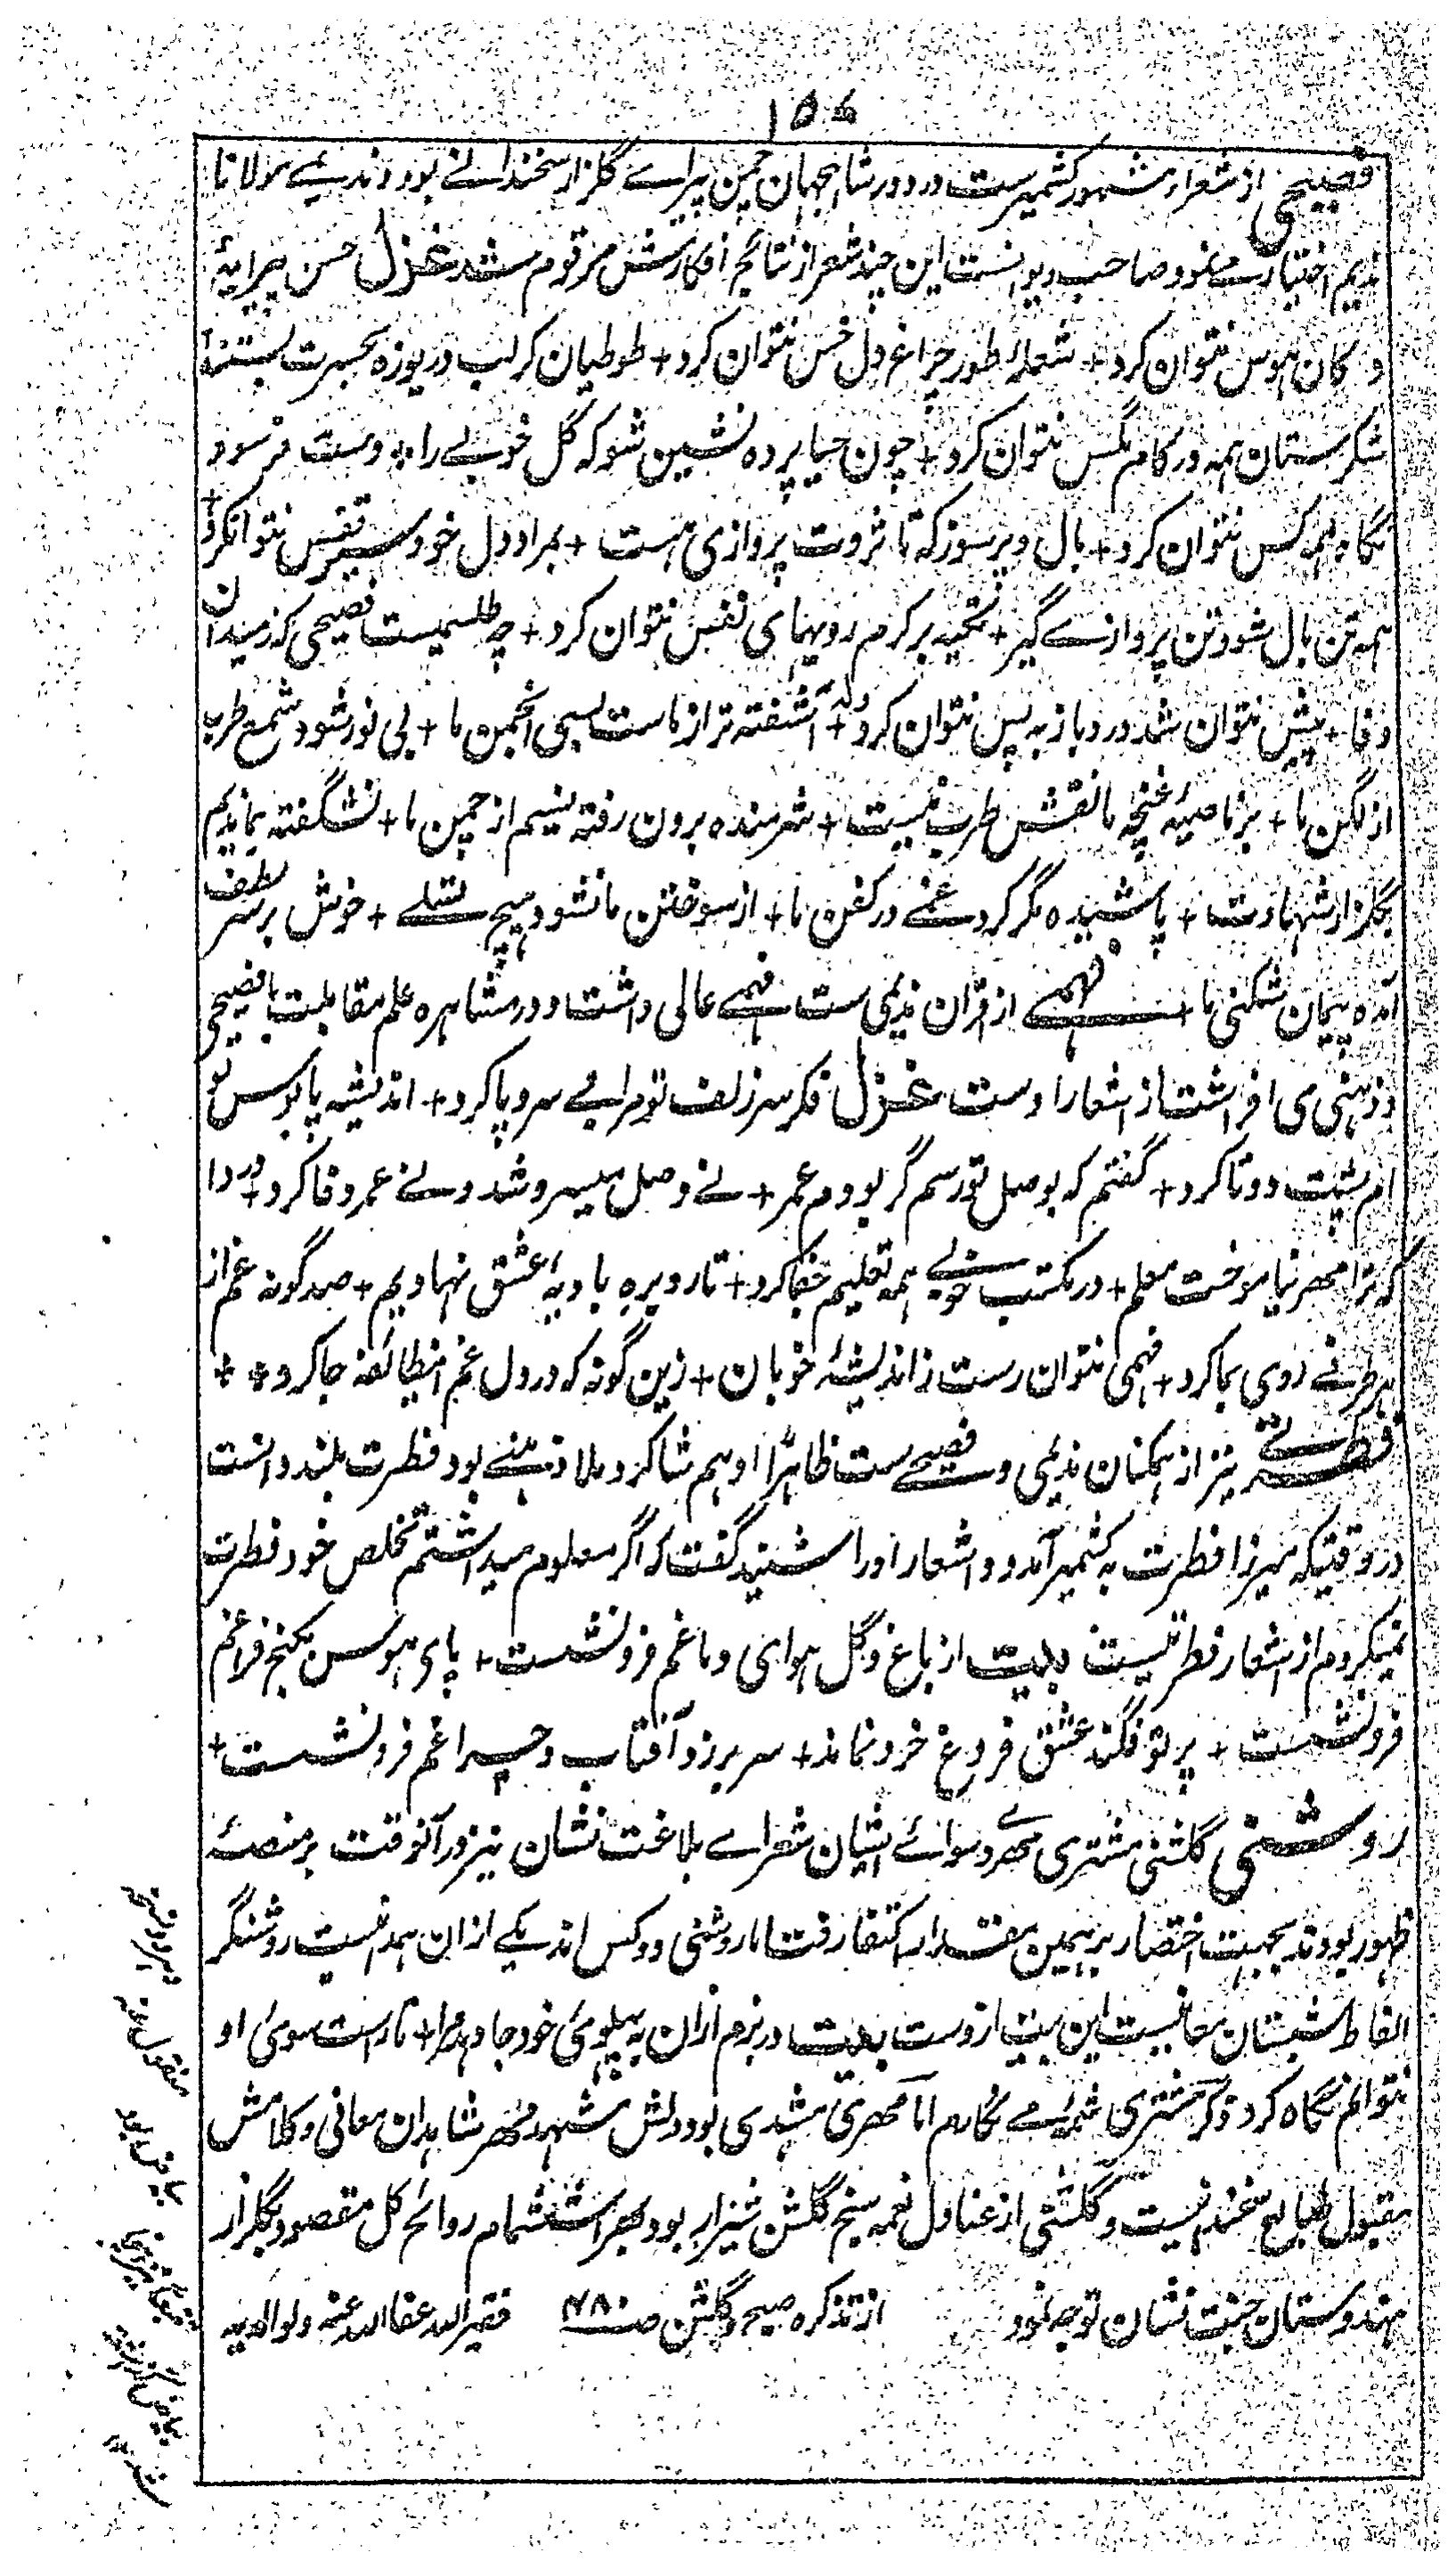 ۱۵۶
فصیحی از شعراء مشهور کشمیرست در دور شاهجهان چمن پیراے گلزار سخندانے بود و ندیمے مولانا
ندیم اختیار مے نمود صاحب دیوانست این چند شعر از نتائج افکارش مرقوم شد غزل حسن پیرایۀ
دکان هوس نتوان کرد + شعلۀ طور چراغ دل خس نتوان کرد + طوطیان کز لب دریوزه بحسرت بستند
شکرستان همه در کام مگس نتوان کرد + چون حیا پرده نشین شو که گل خوبے را + دست فرسود
نگاه همه کس نتوان کرد + بال و پر سوز که تا ثروت پروازی هست + بمراد دل خود سیر قفس نتوانکرد +
همه تن بال شو و تن پروازے گیر + تکیه بر کرم رویهای نفس نتوان کرد + چه طلسمیست فصیحی که ز میدان
وفا + پیش نتوان شد و رو باز به پس نتوان کرد + وله آشفته تر از ماست بسی انجمن ما + بی نور شود شمع طرب
از لگن ما + بر ناصیۀ غنچۀ ما نقش طرب نیست + شرمنده برون رفته نسیم از چمن ما + نشگفته نماندیم
بگلزار شهادت + پاشیده مگر گرد غمے در کفن ما + از سوختن ما نشود هیچ تسلے + خوش بر سر لطف
آمده پیمان شکنی ما + فهمے از اقران ندیمی ست فهمے عالی داشت و در مشاهره علم مقابلت با فصیحی
و ذهنی می افراشت از اشعار اوست غزل فکر سر زلف تو مرا بے سر و پا کرد + اندیشه پابوس تو
ام پشت دوتا کرد + گفتم که بوصل تو رسم گر بودم عمر + نے وصل میسر شد و نے عمر وفا کرد + دردا
که ترا مهر نیاموخت معلم + در مکتب خوبے همه تعلیم جفا کرد + تا رو بره بادیۀ عشق نهادیم + صد گونه غم از
هر طرفے روی بما کرد + فهمی نتوان رست ز اندیشۀ خوبان + زین گونه که در دل غم اینطائفه جا کرد + +
فطرتے نیز از همکنان ندیمی و فصیحے ست ظاهرًا او هم شاگرد ملا ذهنے بود فطرت بلند داشت
در وقتیکه میرزا فطرت به کشمیر آمد و اشعار او را شنید گفت که اگر معلوم میداشتم تخلص خود فطرت
نمیکردم از اشعار فطرتیست بیت از باغ و گل هوای دماغم فرو نشست + پای هوس بکنج فراغم
فرو نشست + پرتو فگند عشق فروغ خرد نماند + سر بر زد آفتاب و چراغم فرو نشست +
روشنی گلشنی مشتری مهری و سوائے ایشان شعراے بلاغت نشان نیز در آنوقت بر منصۀ
ظهور بودند بجهت اختصار بر همین مقدار اکتفا رفت اما روشنی دو کس اند یکے ازان همدانیست روشنگر
الفاظ شبستان معانیست این بیت ازوست بیت در بزم ازان به پهلوئ خود جا دهد مرا + تا راست سوی او
نتوانم نگاه کرد ذکر مشتری شمۀ مے نگارم اما مهری مشهدی بود دلش مشهد مهر شاهدان معانی و کلامش
مقبول طبایع سخندانیست و گلشنی از عنادل نغمه سنج گلشن شیراز بود بهر استشمام روائح گل مقصود بگلزار
هندوستان جنت نشان توجه نمود از تذکره صبح گلشن صـ ۴۸۰ فقیر الله عفا الله عنه و لوالدیه